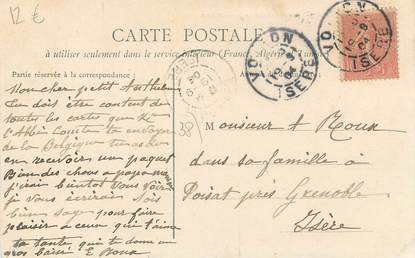 12 €
CARTE POSTALE
à utiliser seulement dans le service intérieur (France, Algérie et Tunisie)
Partie réservée à la correspondance
VOIRON
ISÈRE
VOIRON
ISÈRE
Mon cher petit
tu dois être content de
toutes les cartes que
l'Abbé t'a envoyé
de la Belgique tu as dû
en recevoir un paquet
Bien des choses a papa maman
j'irai bientot Vous Voir
je vous écrirai Sois
bien sage pour faire
plaisir a ceux qui t'aime
ta tante qui te donne un
gros baisé E Roux
38
Monsieur A Roux
dans sa famille à
Poisat près Grenoble
Isère